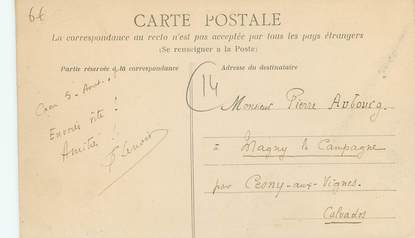 6€
CARTE POSTALE
La correspondance au recto n'est pas acceptée par tous les pays étrangers
(Se renseigner a la Poste)
Partie réservée à la correspondance
Adresse du destinataire
14
Caen 5
Envoie vite !
Amitié !
Monsieur Pierre Aubourg.
= Magny le Campagne
par Cesny-aux-Vignes.
Calvados